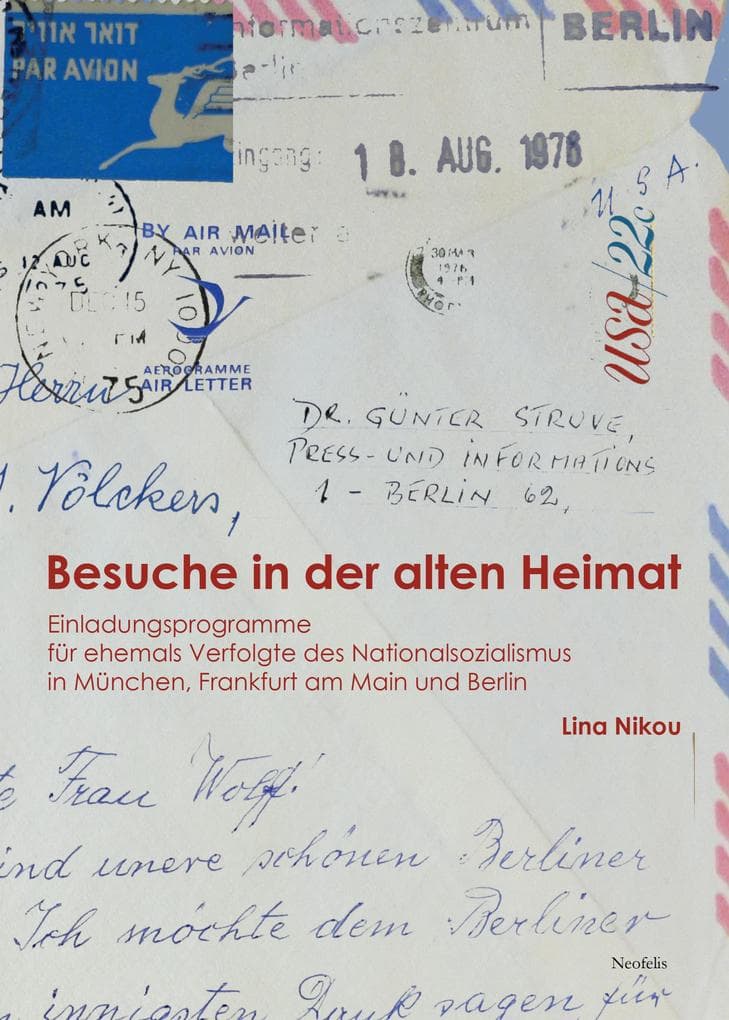 דואר אויר
PAR AVION
Informationszentrum
Berlin
BERLIN
Eingang:
18. AUG. 1976
U S A.
AM
BY AIR MAIL
PAR AVION
weiter a
12 AUC
NEW YORK, NY 100
DEC 15
PM
75
30 MAR
1976
usa 22c
AEROGRAMME
AIR LETTER
Herrn
DR. GÜNTER STRUVE,
PRESS-UND INFORMATIONS
1 - BERLIN 62,
. Völckers,
Besuche in der alten Heimat
Einladungsprogramme
für ehemals Verfolgte des Nationalsozialismus
in München, Frankfurt am Main und Berlin
Lina Nikou
te Frau Wolff!
ind unere schönen Berliner
Ich möchte dem Berliner
Neofelis
innigsten Dank sagen für